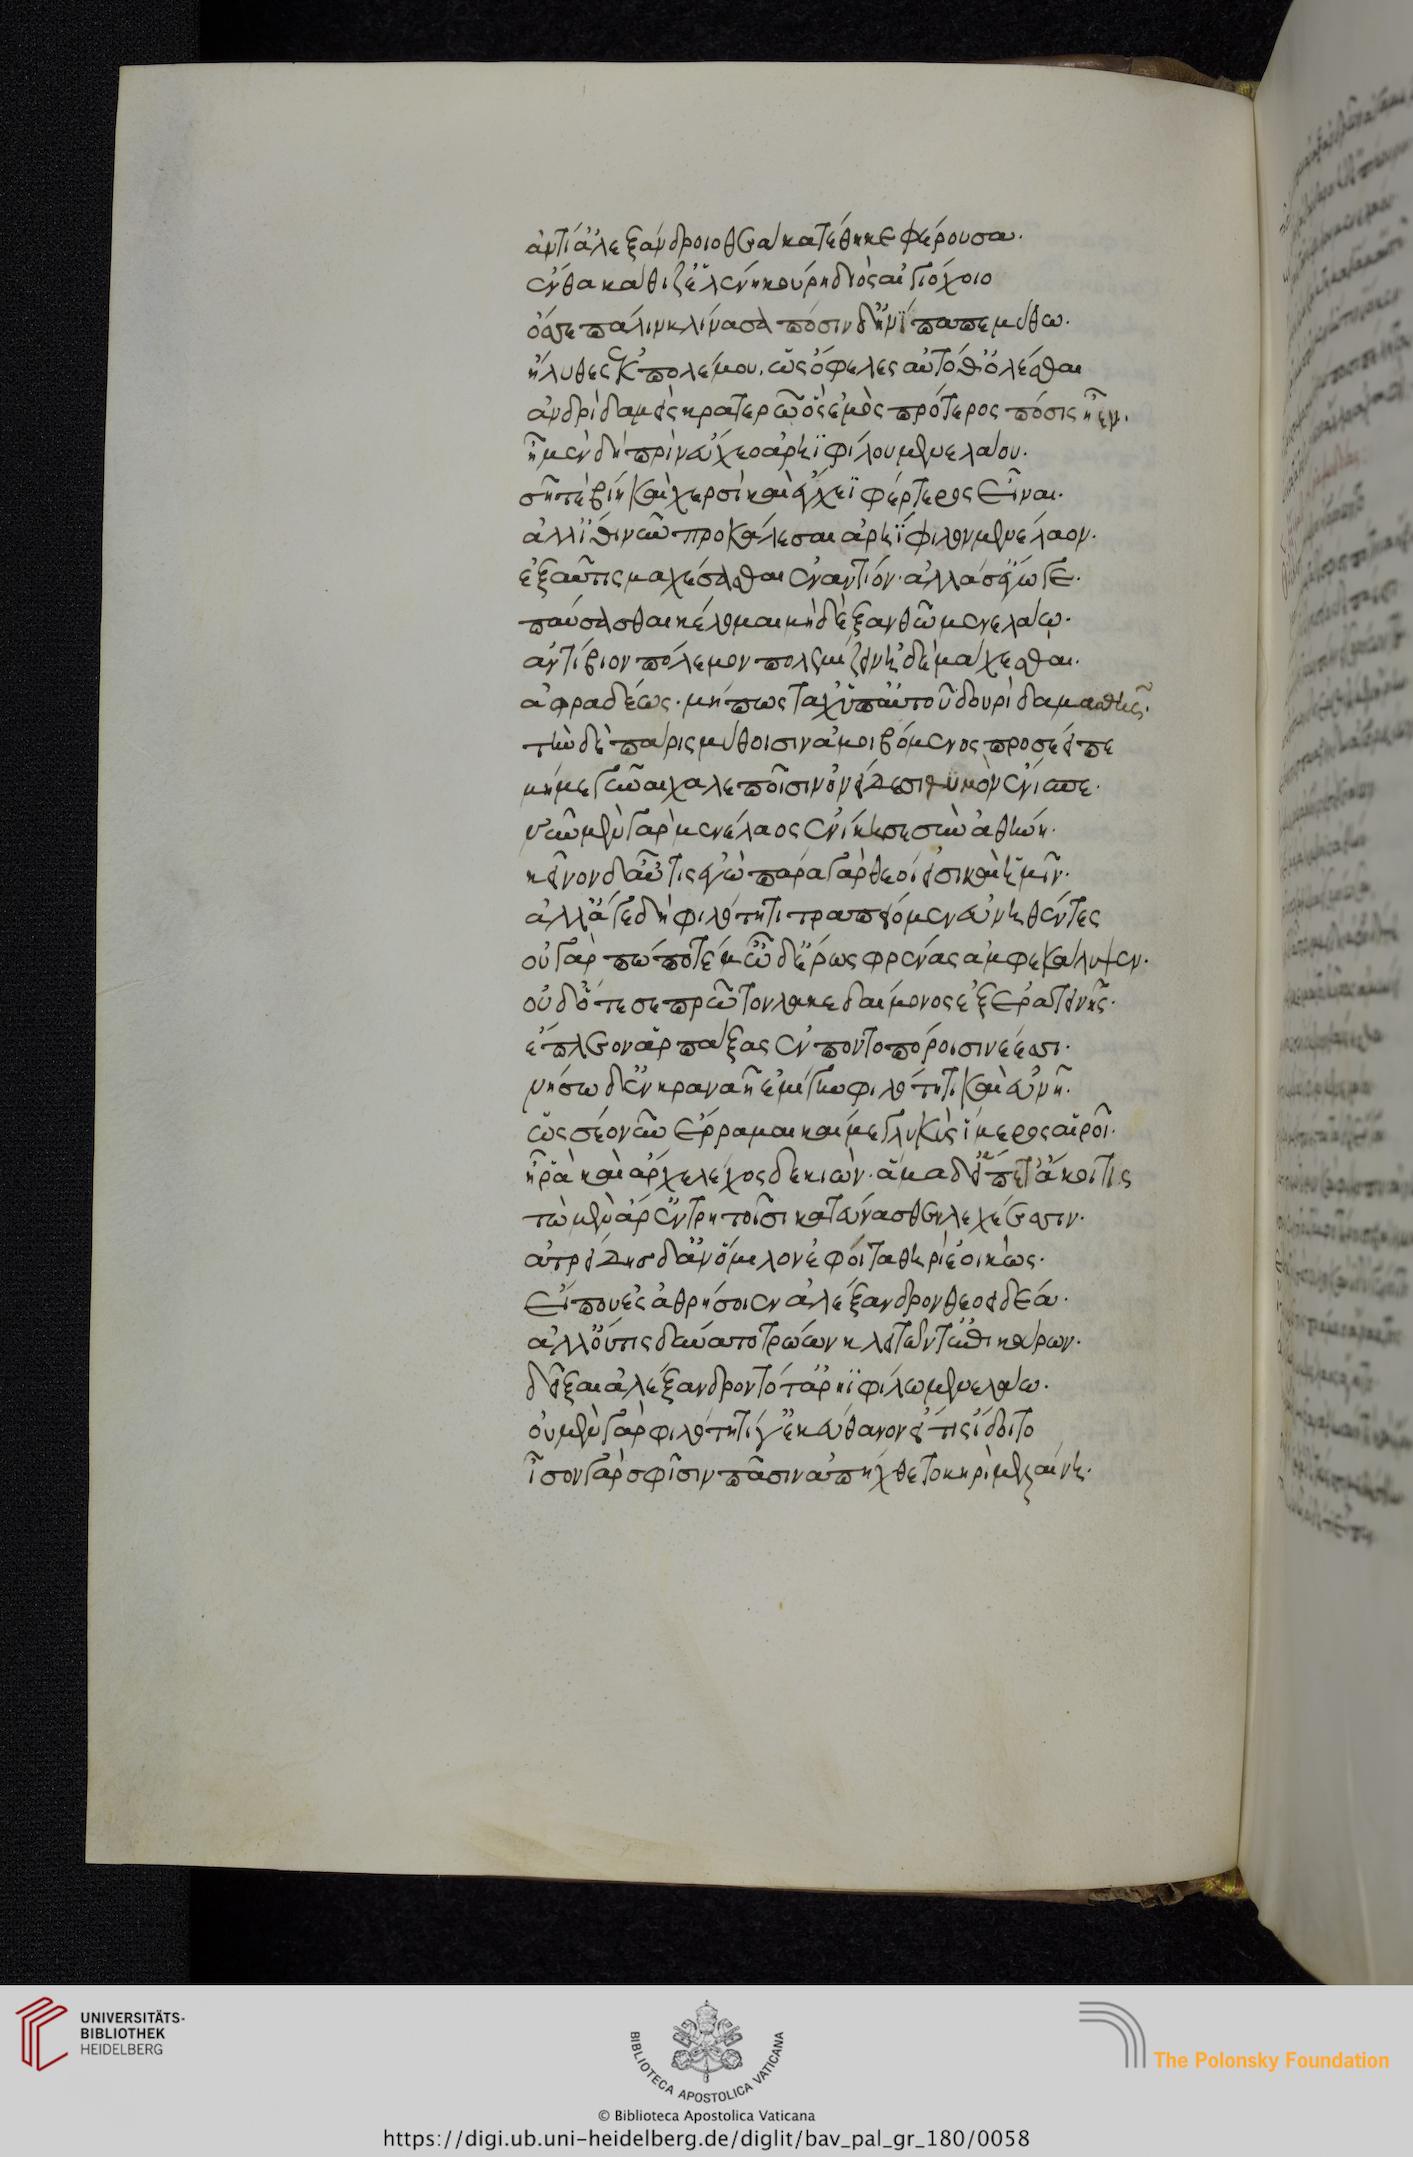 ἀντί ἀλεξάνδροιο θεα κατέθηκε φέρουσα.
ἔνθα καθιζ' ἑλένη κούρη διὸς αἰγιόχοιο
ὄσσε πάλιν κλίνασα πόσιν δ' ἠνίπαπε μύθω.
ἤλυθες ἐκ πολέμου. ὡς ὄφελες αὐτόθ' ὀλέσθαι
ἀνδρὶ δαμεὶς κρατερῶ ὃς ἐμὸς πρότερος πόσις ἦεν.
ἦ μὲν δὴ πρίν εὔχεο ἀρηϊφίλου μενελάου.
σῆ τε βίη καὶ χερσὶ καὶ ἔγχεϊ φέρτερος εἶναι.
ἀλλ' ἴθι νῦν προκάλεσαι ἀρηΐφιλον μενέλαον.
ἐξαῦτις μαχέσασθαι ἐναντίον. ἀλλά σ' ἔγωγε.
παύσασθαι κέλομαι μὴ δὲ ξανθῶ μενελάω.
ἀντίβιον πόλεμον πολεμίζειν ἠδὲ μάχεσθαι.
ἀφραδέως. μήπως τάχ' ὑπ' αὐτοῦ δουρὶ δαμασθῆς.
τὴν δὲ πάρις μύθοισιν ἀμοιβόμενος προσέειπε
μή με γύναι χαλεποῖσιν ὀνείδεσι θυμὸν ἔνιπε.
νῦν μὲν γὰρ μενέλαος ἐνίκησε σὺν ἀθήνη.
κεῖνον δ' αὖτις ἐγὼ παρὰ γὰρ θεοί εἰσι καὶ ἡμῖν.
ἀλλ' ἄγε δὴ φιλότητι τραπείομεν εὐνηθέντες
οὐ γάρ πώποτέ μ' ὧδε ἔρως φρένας ἀμφεκάλυψεν.
οὐδ' ὅτε σε πρῶτον λακεδαίμονος ἐξ ἐρατεινῆς.
ἔπλεον ἁρπάξας ἐν ποντοπόροισι νέεσσι.
νήσω δ' ἐν κραναῆ ἐμίγην φιλότητι καὶ εὐνῆ.
ὥς σέο νῦν ἔρραμαι καί με γλυκὺς ἵμερος αἱροῖ.
ἦ ῥὰ καὶ ἄρχε λέχος δε κιών. ἅμα δ' εἵπετ' ἄκοιτις
τὼ μὲν ἄρ' ἐν τρητοῖσι κατεύνασθεν λεχέεσσιν.
ἀτρείδης δ' ἀν' ὅμιλον ἐφοίτα θηρὶ ἐοικώς.
εἴ που ἐσαθρήσοιεν ἀλέξανδρον θεοειδέα.
ἀλλ' οὔτις δύνατο τρώων κλειτῶν τ' ἐπικούρων.
δεῖξαι ἀλέξανδρον τότ' ἀρηϊφίλω μενελάω.
οὐ μὲν γὰρ φιλότητί γ' ἐκεύθανον εἴ τις ἴδοιτο
ἶσον γὰρ σφῖσιν πᾶσιν ἀπήχθετο κηρὶ μελαίνη.
UNIVERSITÄTS-
BIBLIOTHEK
HEIDELBERG
BIBLIOTECA APOSTOLICA VATICANA
The Polonsky Foundation
© Biblioteca Apostolica Vaticana
https://digi.ub.uni-heidelberg.de/diglit/bav_pal_gr_180/0058